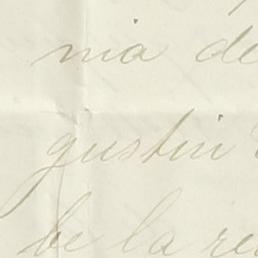 nia de
gustin
be la re